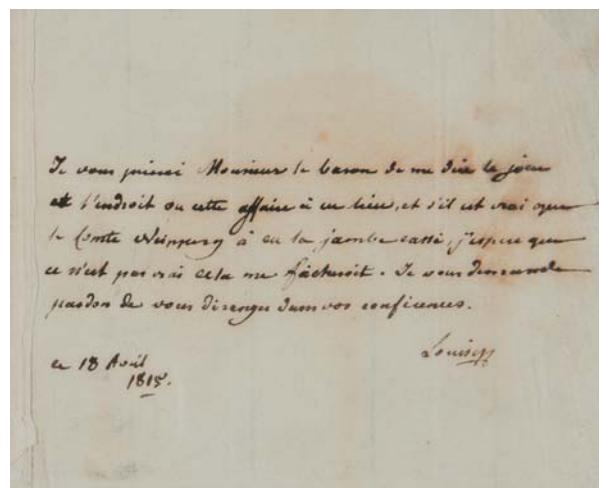 Je vous prierai Monsieur le baron de me dire le jour
et l'endroit ou cette affaire à eu lieu, et s'il est vrai que
le Comte Neipperg à eu la jambe cassé, j'espere que
ce n'est pas vrai cela me fâcheroit. Je vous demande
pardon de vous diranger dans vos conferences.
Louise
ce 18 Avril
1815.